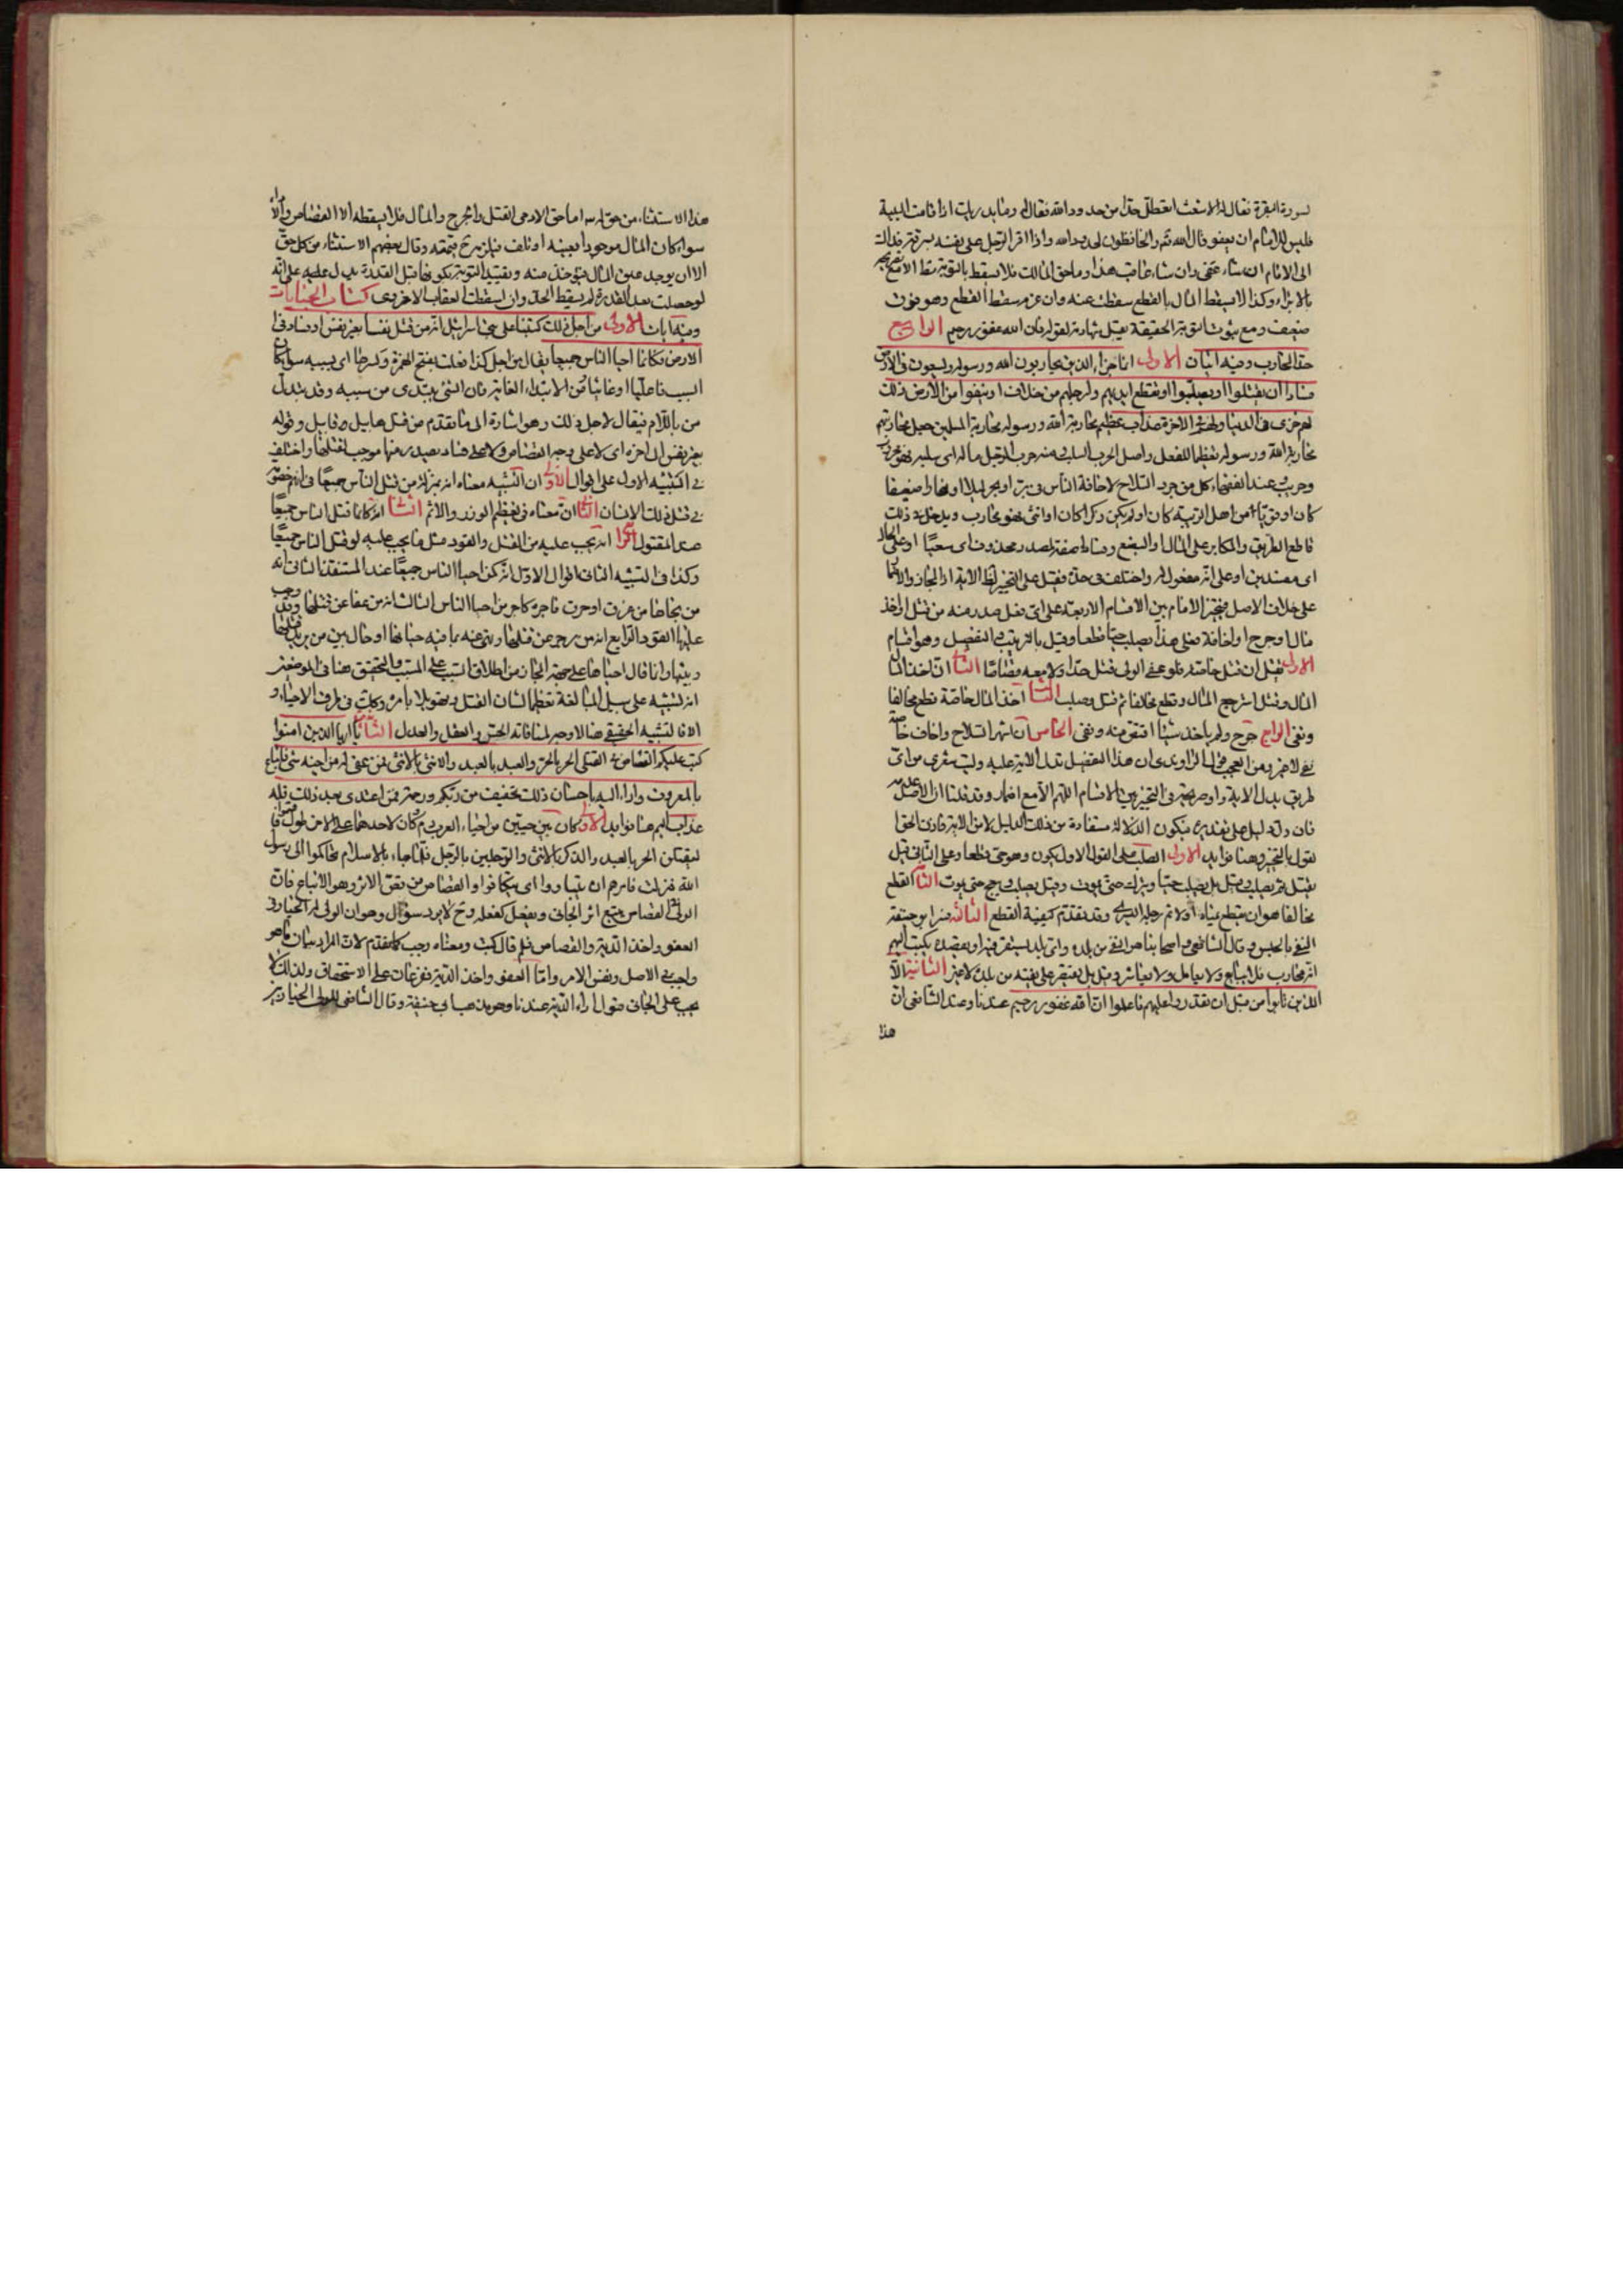 لسورة البقرة فقال له الاشعث اتعطل حدا من حدود الله فقال له وما يدريك اذا قامت البينة
فليس للامام ان يعفو قال الله تع والحافظون لحدود الله واذا اقر الرجل على نفسه بسرقة فذاك
الى الامام ان شاء عفى وان شاء عاقب هذا وما حق المالك فلا يسقط بالتوبة
بالابراء وكذا لا يسقط المال بالقطع سقطت عنه وان غرم سقط القطع وهو
ضعيف ومع ثبوت التوبة الحقيقة يقبل شهادته لقوله فان الله غفور رحيم الرابع
حد المحارب وفيه ايتان الاولى انما جزاء الذين يحاربون الله ورسوله ويسعون فى الارض
فسادا ان يقتلوا او يصلبوا او تقطع ايديهم وارجلهم من خلاف او ينفوا من الارض ذلك
لهم خزى فى الدنيا ولهم فى الاخرة عذاب عظيم محاربة الله ورسوله محاربة المسلمين جعل محاربتهم
محاربة الله ورسوله تعظيما للفعل واصل الحرب السلب ومنه حرب الرجل ماله اى سلبه فهو محروب
وحريب وعند الفقهاء كل من جرد السلاح لاخافة الناس فى بر او بحر ليلا او نهارا ضعيفا
كان او قويا من اهل الريبة كان او لم يكن ذكرا كان او انثى فهو محارب ويدخل فى ذلك
قاطع الطريق والمكابر على المال او البضع وفسادا صفة لمصدر محذوف اى سعيا او على الحال
اى مفسدين او على انه مفعول له واختلف فى حده فقيل على التخيير لظاهر الاية
على خلاف الاصل فيتخير الامام بين الاقسام الاربعة على اى فعل صدر منه من قتل او اخذ
مال او جرح او اخافة فعلى هذا يصلب حيا قطعا وقيل بالترتيب والتفصيل وهو اقسام
الاول يقتل ان قتل خاصة فلو عفى الولى قتل حدا ولا معه قصاصا الثانى ان اخذ
المال وقتل استرجع المال وقطع مخالفا ثم قتل وصلب الثالث اخذ المال خاصة قطع مخالفا
ونفى الرابع جرح ولم ياخذ شيئا اقتص منه ونفى الخامس ان شهر السلاح واخاف خاصة
نفى لا غير ومن العجب قول الراوندى ان هذا التفصيل تدل الاية عليه وليت شعرى من اى
طريق يدل الاية واو صريحة فى التخيير بين الاقسام اللهم الا مع اضمار وقد قلنا ان الاصل عدمه
فان دل دليل على تقديره فيكون الدلالة مستفادة من ذلك الدليل لا من الاية فاذن الحق
القول بالتخيير وهنا فوايد الاولى الصلب على القول الاول يكون وهو حى قطعا وعلى الثانى قيل
يقتل ثم يصلب وقيل بل يصلب حيا ويترك حتى يموت وقيل يصلب ويبعج حتى يموت الثانية القطع
مخالفا هو ان يقطع يمناه اولا ثم رجله اليسرى وقد تقدم كيفية القطع الثالثة فسر ابو حنيفة
النفى بالحبس وقال الشافعى واصحابنا هو النفى من بلده واى بلد يستقر فيه او يقصده يكتب اليهم
انه محارب فلا يبايع ولا يعامل ولا يعاشر وقيل بل يقتصر على نفيه من بلده لا غير الثانية الا
الذين تابوا من قبل ان تقدروا عليهم فاعلموا ان الله غفور رحيم عندنا وعند الشافعى ان
هذا
هذا الاستثناء من حق الله اما حق الادمى القتل والجرح والمال فلا يسقطه الا القصاص
سواء كان المال موجودا بعينه او تالف فيلزمه قيمته وقال بعضهم الاستثناء من كل حق
الا ان يوجد عين المال فيؤخذ منه وتقييد التوبة بكونها قبل القدرة يدل عليه على انه
لو حصلت بعد القدرة لم يسقط الحد وان اسقطت العقاب الاخروى كتاب الجنايات
وفيه ايات الاولى من اجل ذلك كتبنا على بنى اسرائيل انه من قتل نفسا بغير نفس او فساد فى
الارض فكانما احيا الناس جميعا يقال من اجل كذا فعلت بفتح الهمزة وكسرها اى بسببه سواء كان
السبب فاعليا او غائيا من الابتداء الغاية فان الشئ يبتدى من سببه وقد يبدل
من باللام فيقال لاجل ذلك وهو اشارة الى ما تقدم من قتل هابيل وقابيل وقوله
بغير نفس الى اخره اى لا على وجه القصاص ولا على فساد يصدر منها موجب لقتلها واختلف
فى التشبيه الاول على اقوال الاول ان التشبيه معناه انه بمنزلة من قتل الناس جميعا فى انهم خصومه
فى قتل ذلك الانسان الثانى ان معناه فى تعظيم الوزر والاثم الثالث انه كانما قتل الناس جميعا
عند المقتول الرابع انه يجب عليه من القتل والقود مثل ما يجب عليه لو قتل الناس جميعا
وكذا فى التشبيه الثانى اقوال الاول انه كمن احيا الناس جميعا عند المستنقذ الثانى انه
من نجاها من غرق او حرق فاجره كاجر من احيا الناس الثالث انه من عفا عن قتلها وقد وجب
عليها القود الرابع انه من زجر عن قتلها ونهى عنه بما فيه حياتها او حال بين من يريد قتلها
وبينها وانما قال احياها على جهة المجاز من اطلاق السبب على المسبب والتحقيق هنا فى الموضعين
انه تشبيه على سبيل المبالغة تعظيما لشان القتل وتهويلا بامره وكذلك فى طرف الاحياء و
الا فالتشبيه الحقيقى هنا لا وجه له لمنافاته الحس والعقل والعدل الثانية يا ايها الذين امنوا
كتب عليكم القصاص فى القتلى الحر بالحر والعبد بالعبد والانثى بالانثى فمن عفى له من اخيه شئ فاتباع
بالمعروف واداء اليه باحسان ذلك تخفيف من ربكم ورحمة فمن اعتدى بعد ذلك فله
عذاب اليم هنا فوايد الاولى كان بين حيين من احياء العرب دم وكان لاحدهما على الاخر طول فاقسموا
ليقتلن الحر بالعبد والذكر بالانثى والرجلين بالرجل فلما جاء بالاسلام تحاكموا الى رسول
الله فنزلت فامرهم ان يتباووا اى يتكافوا والقصاص من تقص الاثر وهو الاتباع فان
الولى فى القصاص يتبع اثر الجانى ويفعل كفعله وح لا يرد سؤال وهو ان الولى له الخيار فى
العفو واخذ الدية والقصاص فلم قال كتب ومعناه وجب كما تقدم لان المراد بيان ما هو
واجب فى الاصل ونفس الامر واما العفو واخذ الدية تفرعات على الاستحقاق ولذلك لا
يجب على الجانى قبول اداء الدية عندنا وهو مذهب ابى حنيفة وقال الشافعى للولى الخيار بين